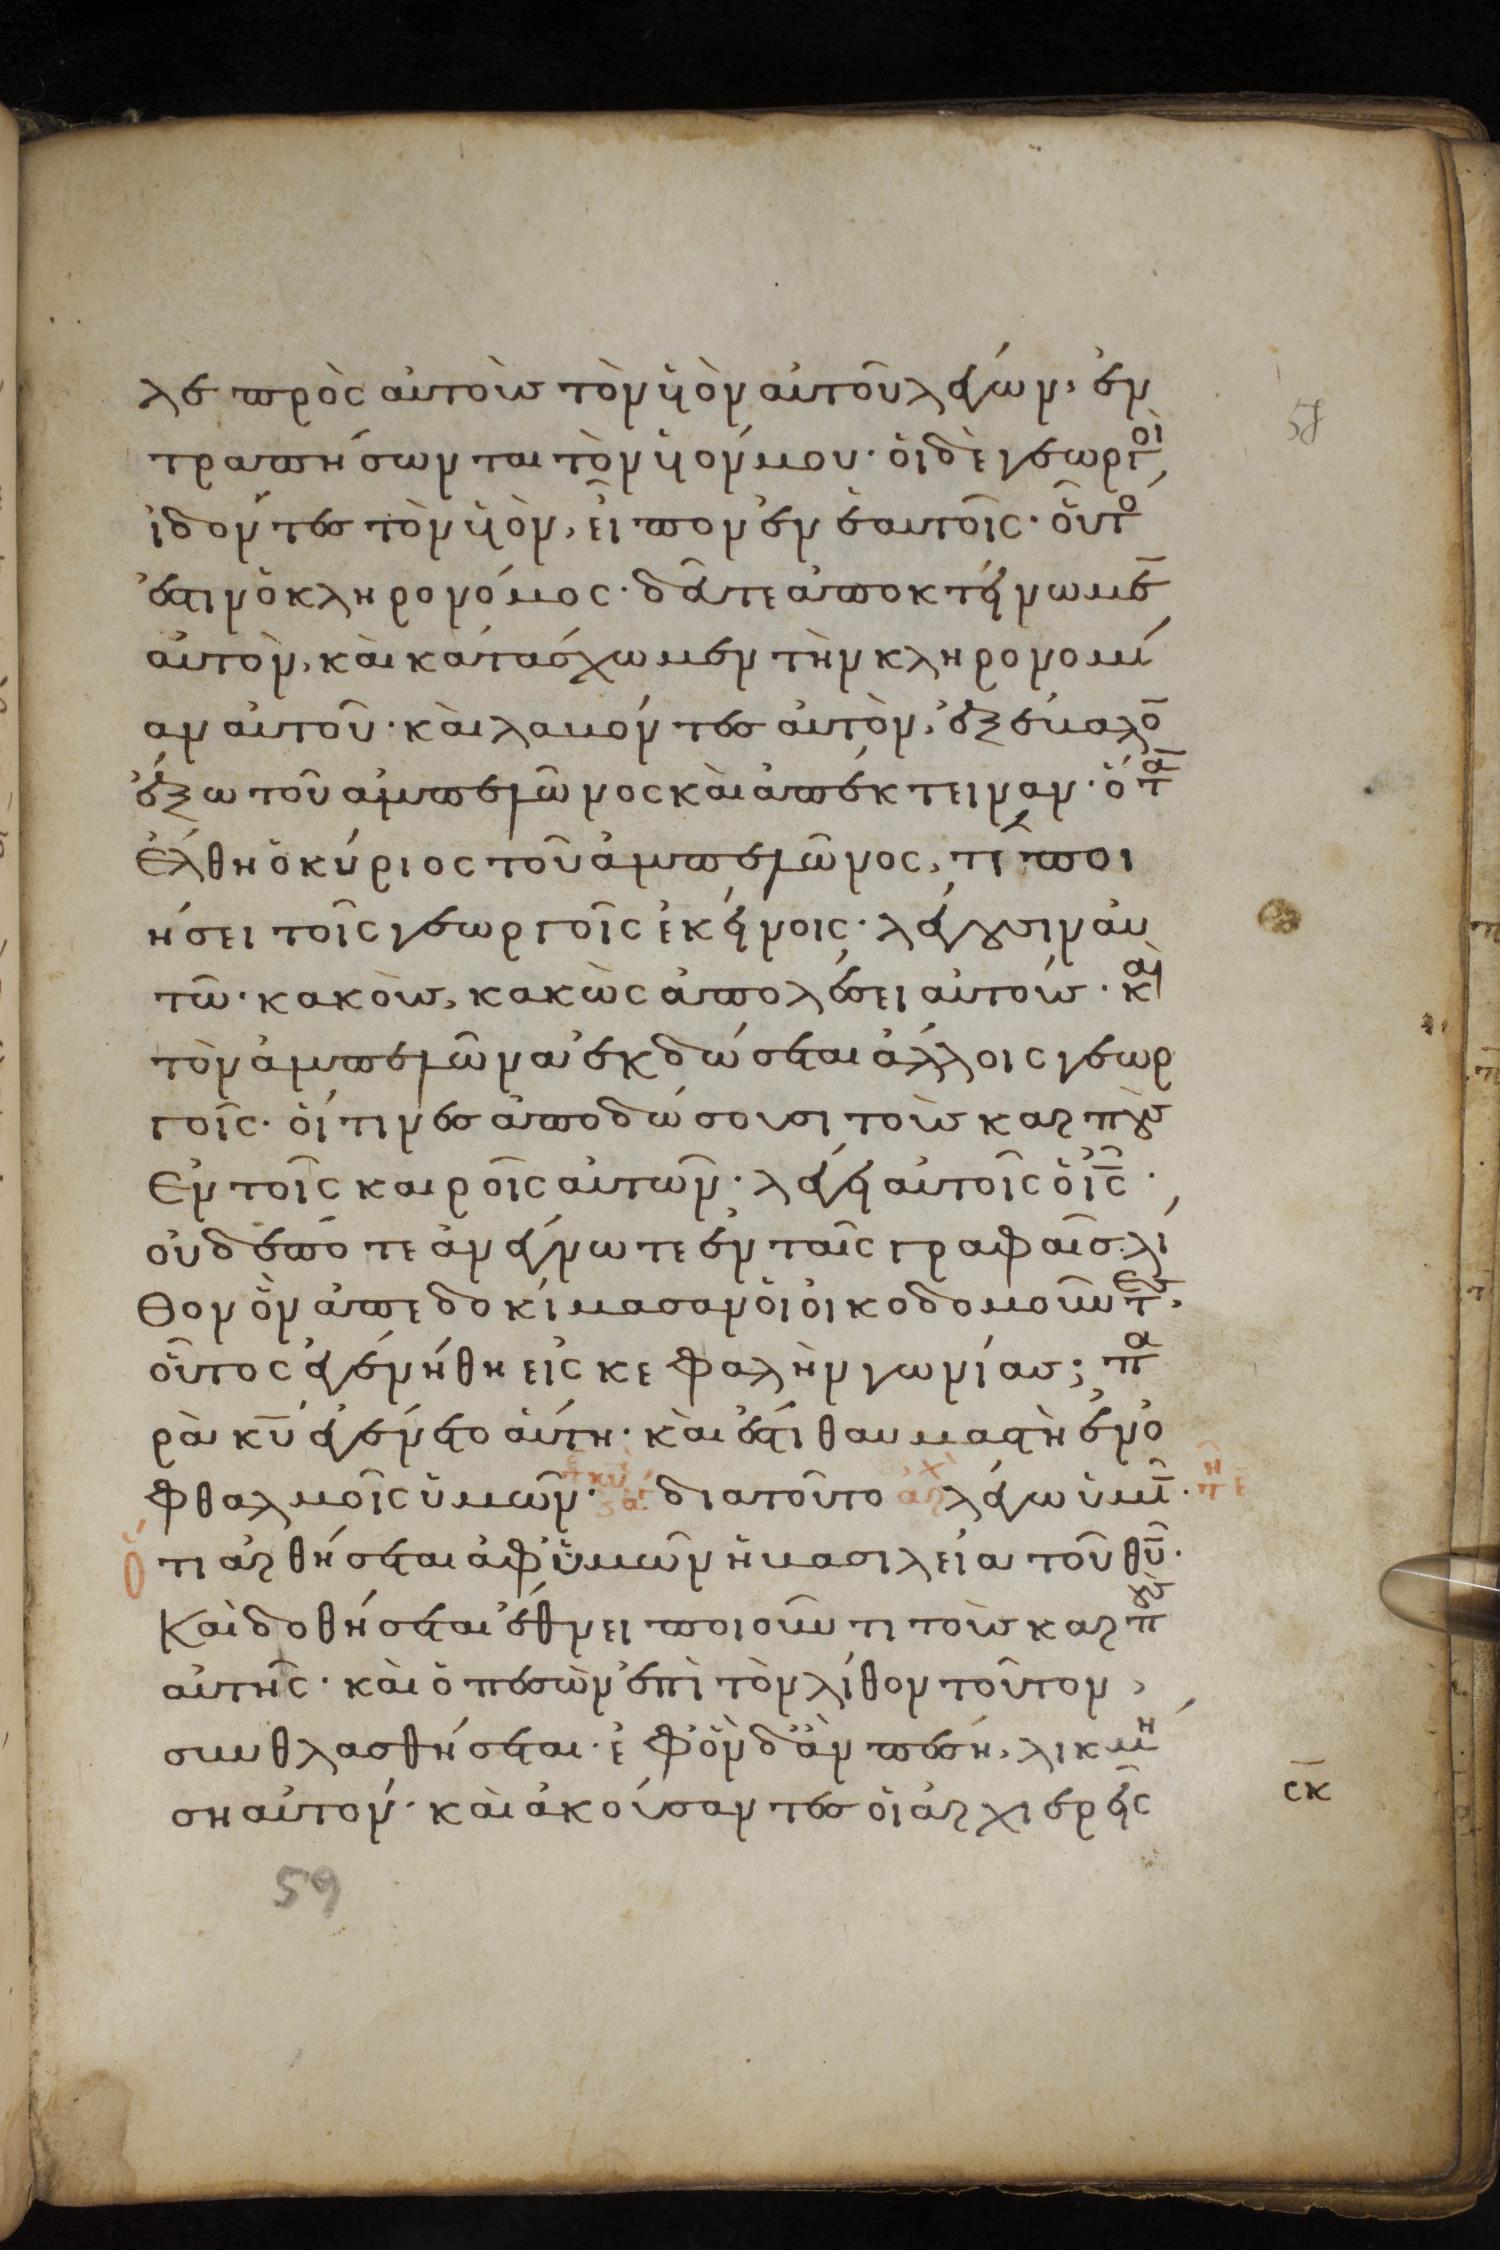 λε πρὸς αὐτοὺς τὸν υἱὸν αὐτοῦ λέγων, ἐν
τραπήσωνται τὸν υἱόν μου· οἱ δὲ γεωργοὶ
ἰδόντες τὸν υἱὸν, εἶπον ἐν ἑαυτοῖς· οὗτο
ἐστιν ὁ κληρονόμος· δεῦτε ἀποκτείνωμε̄
αὐτὸν, καὶ κατάσχωμεν τὴν κληρονομί
αν αὐτοῦ· καὶ λαβόντες αὐτὸν, ἐξέβαλο̄
ἔξω τοῦ ἀμπελῶνος καὶ ἀπέκτειναν· ὅτᾱ
ἔλθη ὁ κύριος τοῦ ἀμπελῶνος, τί ποι
ήσει τοῖς γεωργοῖς ἐκείνοις· λέγουσιν αὐ
τῶ· κακοὺς, κακῶς ἀπολέσει αὐτούς· καὶ
τὸν ἀμπελῶνα ἐκδώσεται ἄλλοις γεωρ
γοῖς· οἵτινες ἀποδώσουσι τοὺς καρποὺς
ἐν τοῖς καιροῖς αὐτῶν· λέγει αὐτοῖς ὁ ι̅ς̅·
οὐδέποτε ἀνέγνωτε ἐν ταῖς γραφαῖς· λί
θον ὃν ἀπεδοκίμασαν οἱ οἰκοδομοῦντες,
οὗτος ἐγενήθη εἰς κεφαλὴν γωνίας; πα
ρὰ κ̅υ̅ ἐγένετο αὕτη· καὶ ἔστι θαυμαστὴ ἐν ὀ
φθαλμοῖς ὑμῶν· διατοῦτο λέγω ὑμῖ̄·
ὅτι ἀρθήσεται ἀφ' ὑμῶν ἡ βασιλεία τοῦ θ̅υ̅·
Καὶ δοθήσεται ἔθνει ποιοῦντι τοὺς καρποὺς
αὐτῆς· καὶ ὁ πεσὼν ἐπὶ τὸν λίθον τοῦτον,
συνθλασθήσεται· ἐφ' ὃν δ' ἂν πέση, λικμή
ση αὐτόν· καὶ ἀκούσαντες οἱ ἀρχιερεῖς
σ̅κ̅
58
59